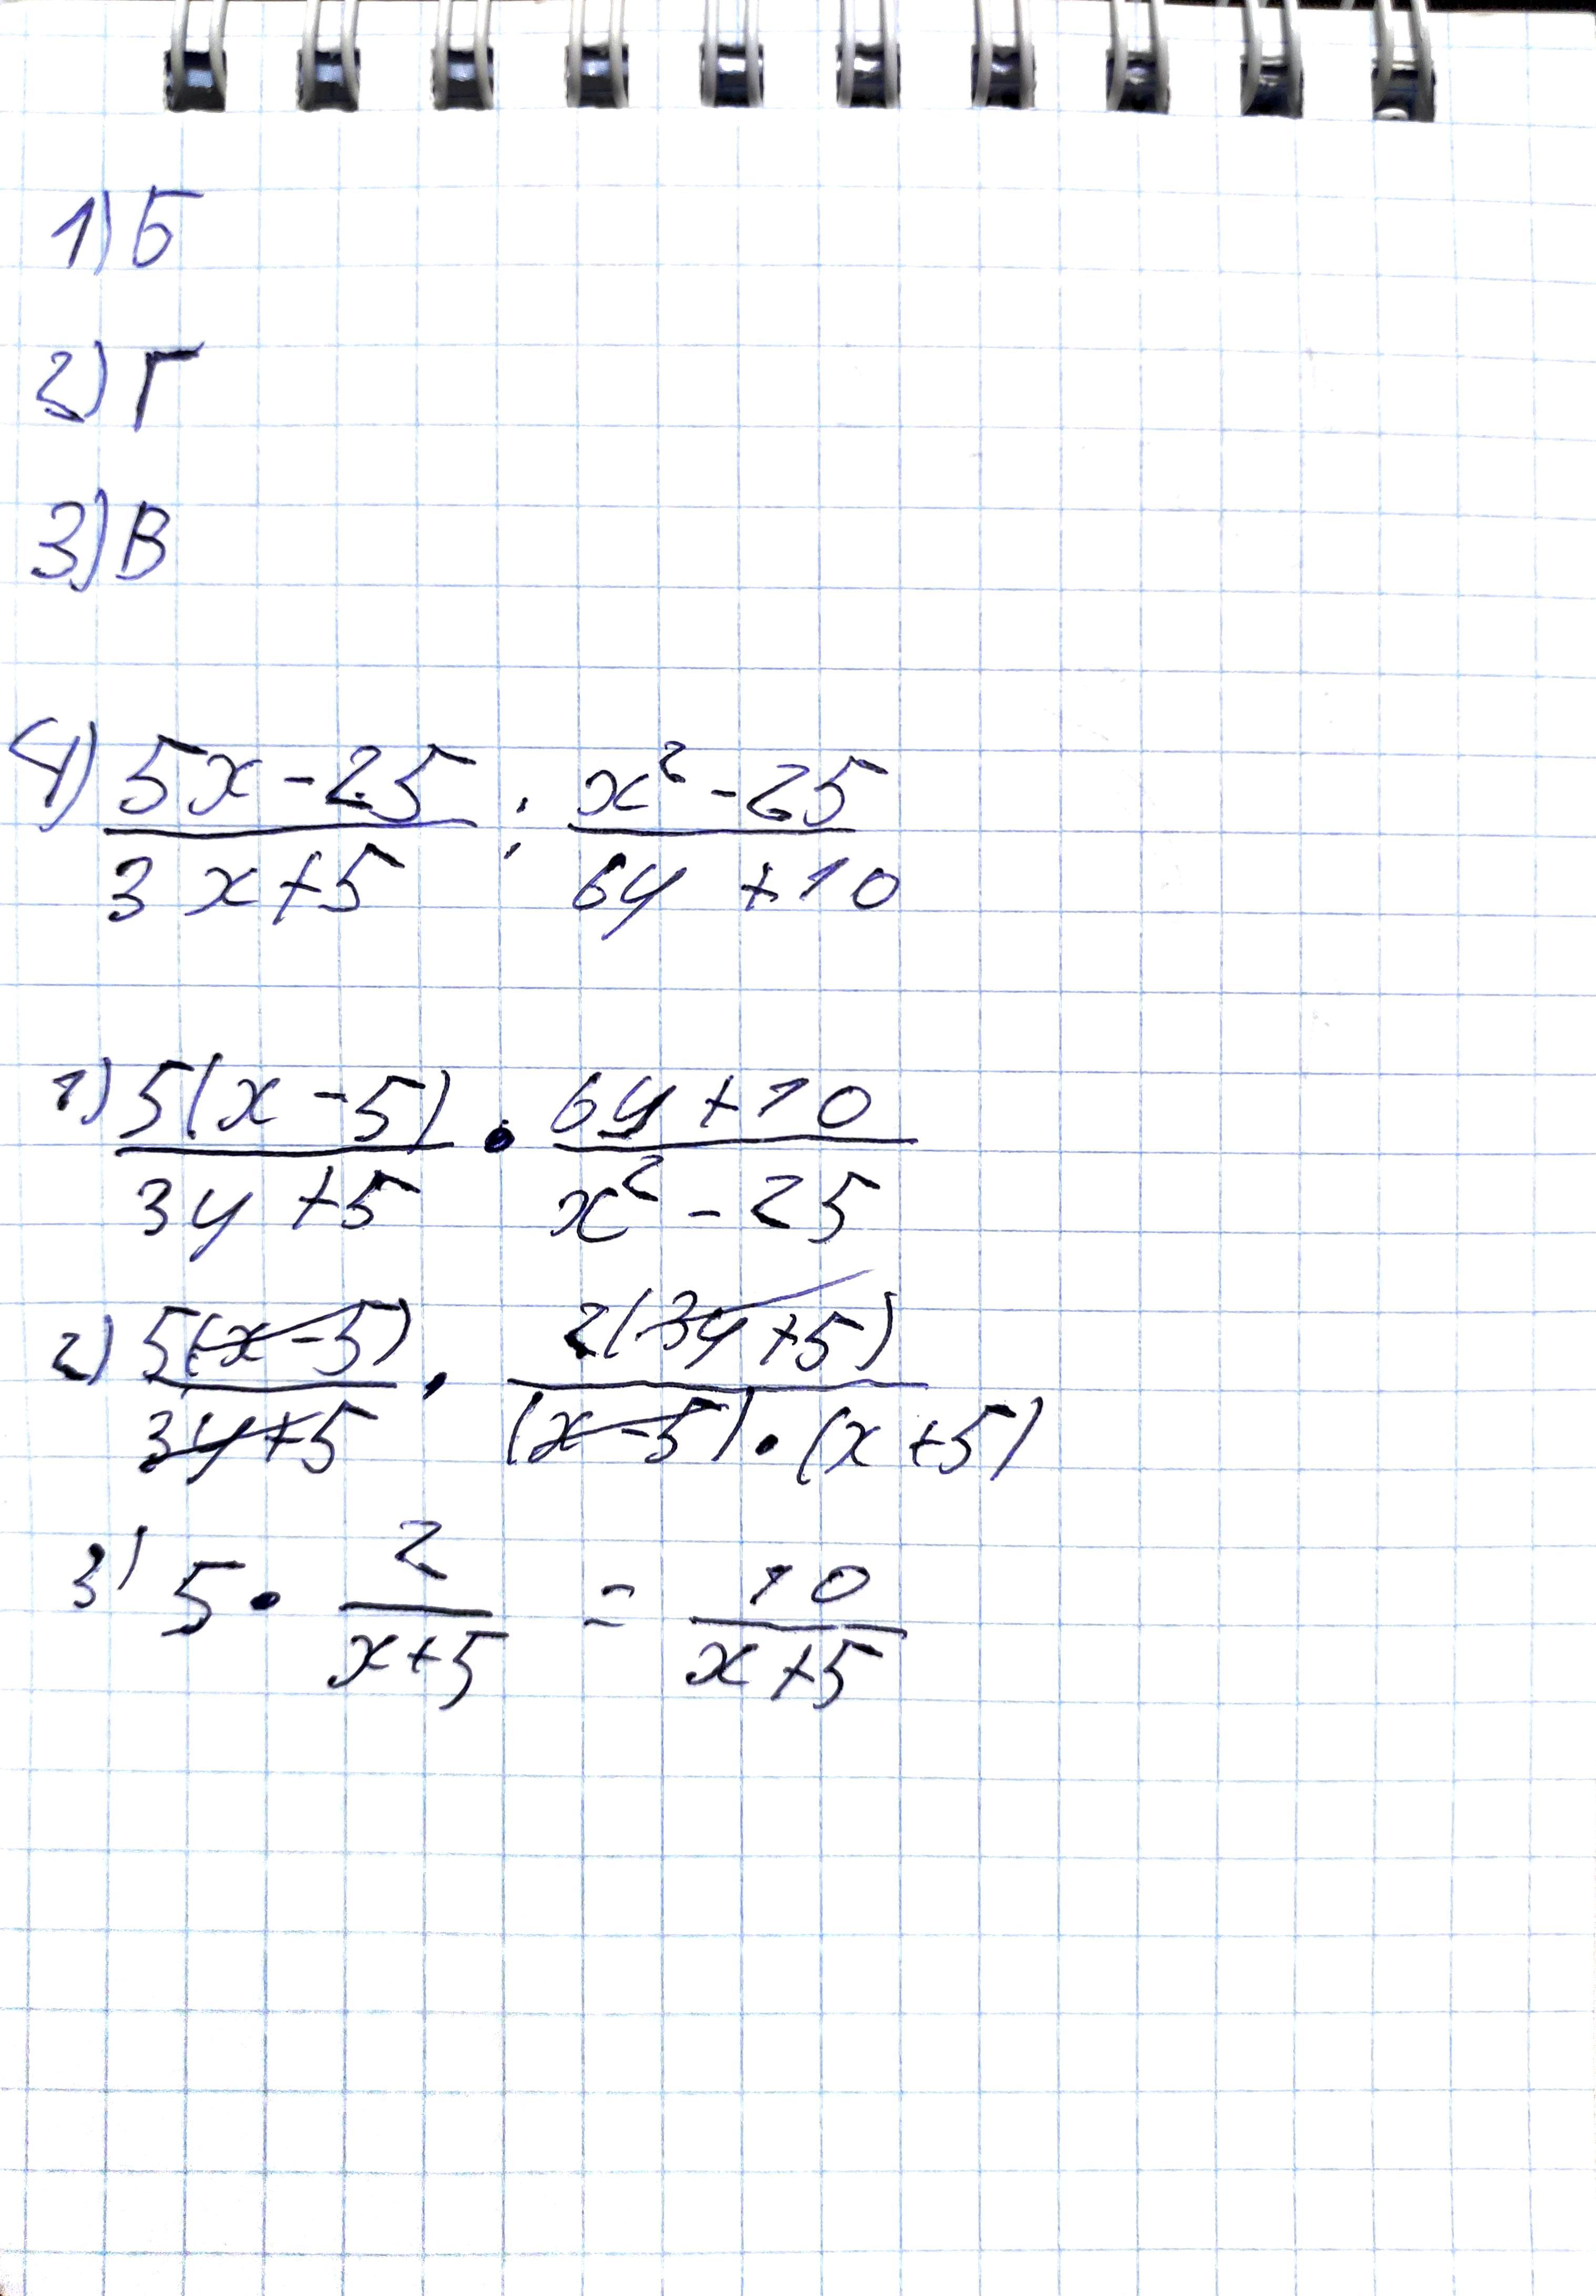 1) Б
2) Г
3) В
4) (5x - 25)/(3x + 5) : (x² - 25)/(6y + 10)
1) 5(x - 5)/(3y + 5) · (6y + 10)/(x² - 25)
2) 5(x - 5)/(3y + 5) · 2(3y + 5)/((x - 5) · (x + 5))
3) 5 · 2/(x + 5) = 10/(x + 5)